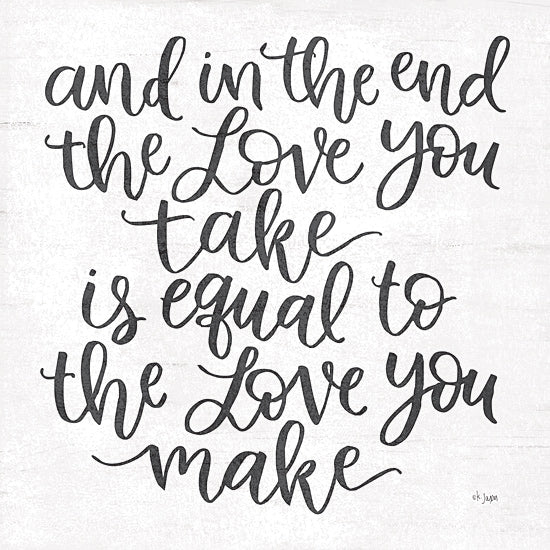 and in the end
the Love you
take
is equal to
the Love you
make